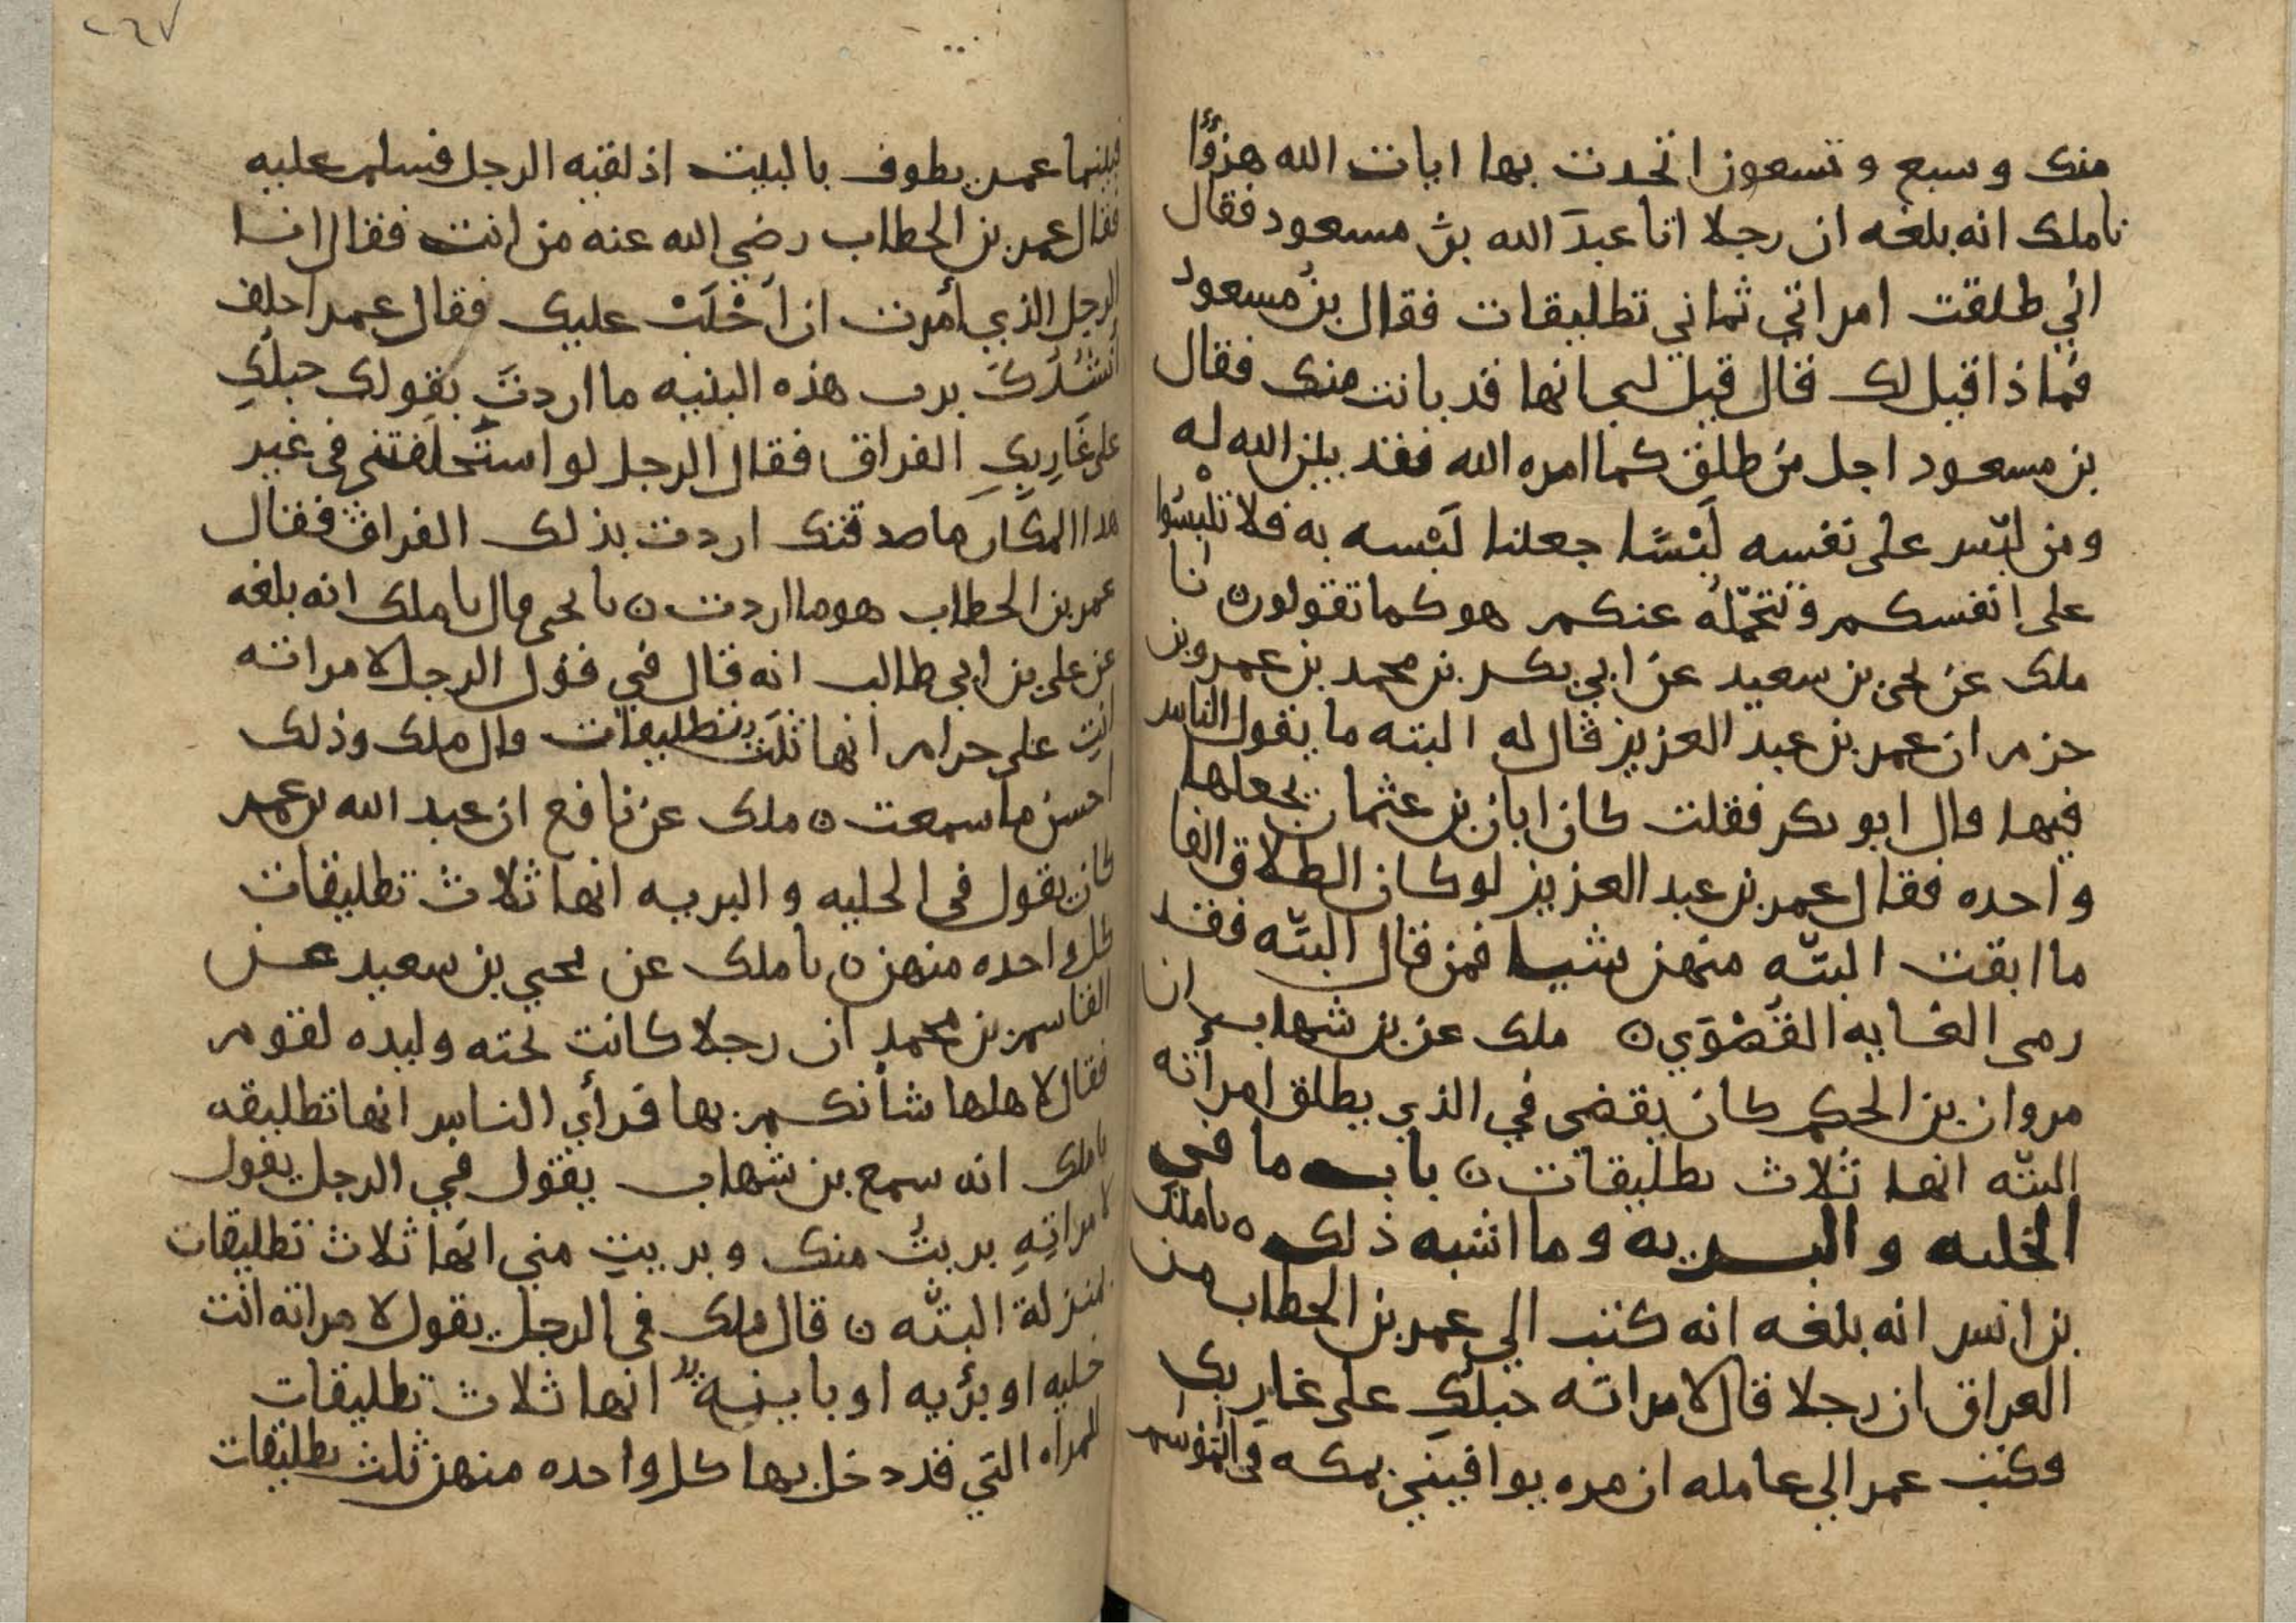 منك وسبع وتسعون اتخدت بها ايات الله هزؤا
نا ملك انه بلغه ان رجلا اتا عبدَ الله بن مسعود فقال
اني طلقت امراتي ثماني تطليقات فقال بن مسعود
فماذا قيل لك قال قيل لي انها قد بانت منك فقال
بن مسعود اجل من طلق كما امره الله فقد بين الله له
ومن لبّس على نفسه لَبْسًا جعلنا لَبْسه به فلا تلبسُوا
على انفسكم ونتحمّلُه عنكم هو كما تقولون نا
ملك عن يحيى بن سعيد عن ابي بكر بن محمد بن عمرو بن
حزم ان عمر بن عبد العزيز قال له البته ما يقول الناس
فيها قال ابو بكر فقلت كان ابان بن عثمان يجعلها
واحده فقال عمر بن عبد العزيز لو كان الطلاق الفا
ما ابقت البتّه منهن شيا فمن قال البتّه فقد
رمى الغايه القُصْوَي ن ملك عن بن شهاب ان
مروان بن الحكم كان يقضى في الذي يطلق امراته
البتّه انها ثلاث تطليقات ن باب ما في
الخليه والبريه وما اشبه ذلك ن نا ملك
بن انس انه بلغه انه كتب الي عمر بن الخطاب من
العراق ان رجلا قال لامراته حبلُكِ على غاربك
وكتب عمر الي عامله ان مره يوافيني بمكه في الموسم
٢٦٧
فبينما عمر يطوف بالبيت اذ لقيه الرجل فسلم عليه
فقال عمر بن الخطاب رضي الله عنه من انت فقال انا
الرجل الذي أمرت ان اَجْلَبَ عليك فقال عمر احلف
أنشُدُكَ برب هذه البنيه ما اردتَ بقولك حبلُكِ
على غَارِبِكِ الفراق فقال الرجل لو استَحلفتني في غير
هذا المكان ما صدقتك اردت بذلك الفراق فقال
عمر بن الخطاب هو ما اردت ن نا يحيى قال نا ملك انه بلغه
عن علي بن ابي طالب انه قال في قول الرجل لامراته
انتِ علي حرام انها ثلَثُ تطليقات قال ملك وذلك
احسن ما سمعت ن ملك عن نافع ان عبد الله بن عمر
كان يقول في الخليه والبريه انها ثلاث تطليقات
كل واحده منهن ن نا ملك عن يحيي بن سعيد عن
القاسم بن محمد ان رجلا كانت تحته وليده لقوم
فقال لاهلها شأنكم بها فرأي الناس انها تطليقه
نا ملك انه سمع بن شهاب يقول في الرجل يقول
لامراتِهِ بريتُ منك وبريتِ مني انها ثلاث تطليقات
بمنزلة البتّه ن قال ملك في الرجل يقول لامراته انت
خليه او بريه او باينة انها ثلاث تطليقات
للمراه التي قد دخل بها كل واحده منهن ثلث تطليقات